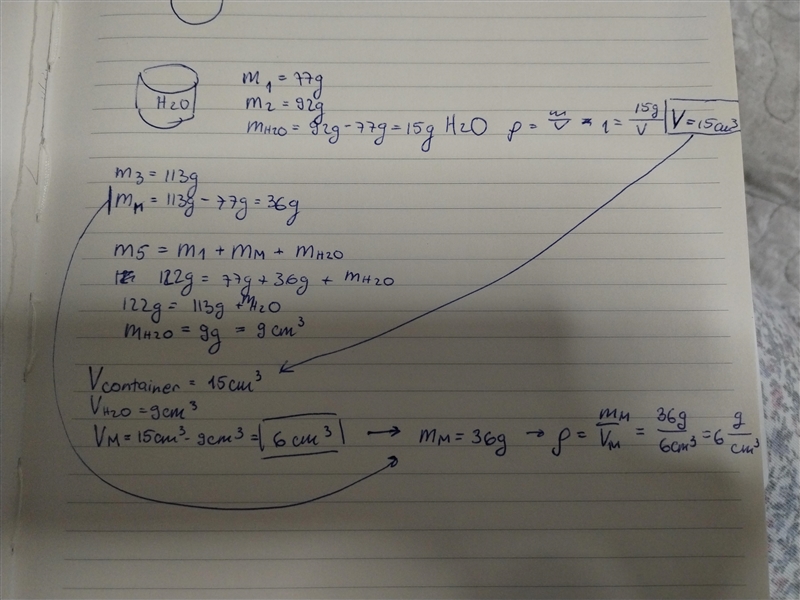 H2O
m1 = 77g
m2 = 92g
mH2O = 92g - 77g = 15g H2O ρ = m/V → 1 = 15g/V V = 15cm³
m3 = 113g
mM = 113g - 77g = 36g
m5 = m1 + mM + mH2O
122g = 77g + 36g + mH2O
122g = 113g + mH2O
mH2O = 9g = 9cm³
Vcontainer = 15cm³
VH2O = 9cm³
VM = 15cm³ - 9cm³ = 6cm³ → mM = 36g → ρ = mM/VM = 36g/6cm³ = 6 g/cm³